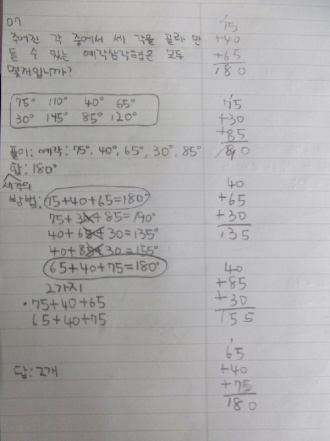 07
주어진 각 중에서 세 각을 골라 만
들 수 있는 예각삼각형은 모두
몇개입니까?
75° 110° 40° 65°
30° 145° 85° 120°
풀이: 예각: 75°. 40°, 65°, 30°, 85°
합: 180°
세각의
방법: 75+40+65=180°
75+30+85=190°
40+65+30=135°
40+85+30=155°
65+40+75=180°
2가지
•75+40+65
65+40+75
답: 2개
75
+40
+65
180
75
+30
+85
190
40
+65
+30
135
40
+85
+30
155
1
65
+40
+75
180